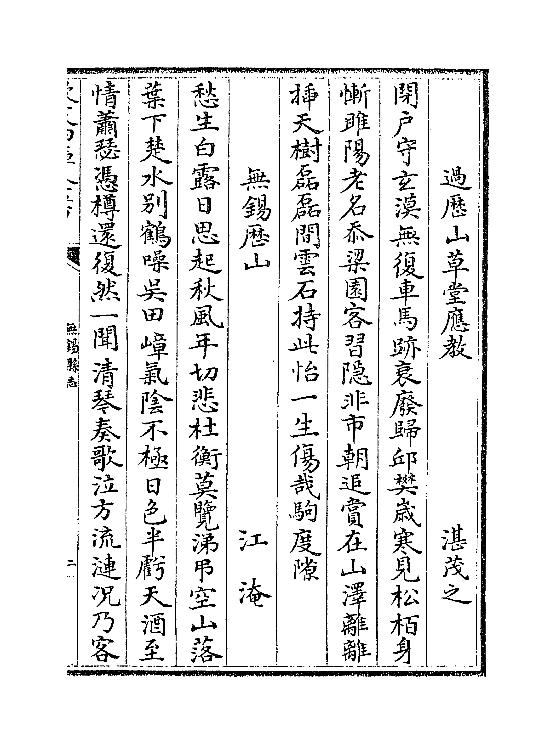 過歴山草堂應教 湛茂之
閉户守玄漠無復車馬跡衰廢歸邱樊歳寒見松栢身
慚雎陽老名忝梁園客習隐非市朝追賞在山澤離離
揷天樹磊磊間雲石持此怡一生傷哉駒度隙
無錫歴山 江淹
愁生白露日思起秋風年切悲杜衡莫覽涕弔空山落
葉下楚水别鶴噪吳田嶂氣陰不極日色半虧天酒至
情蕭瑟憑樽還復然一聞清琴奏歌泣方流漣况乃客
無錫縣志
二